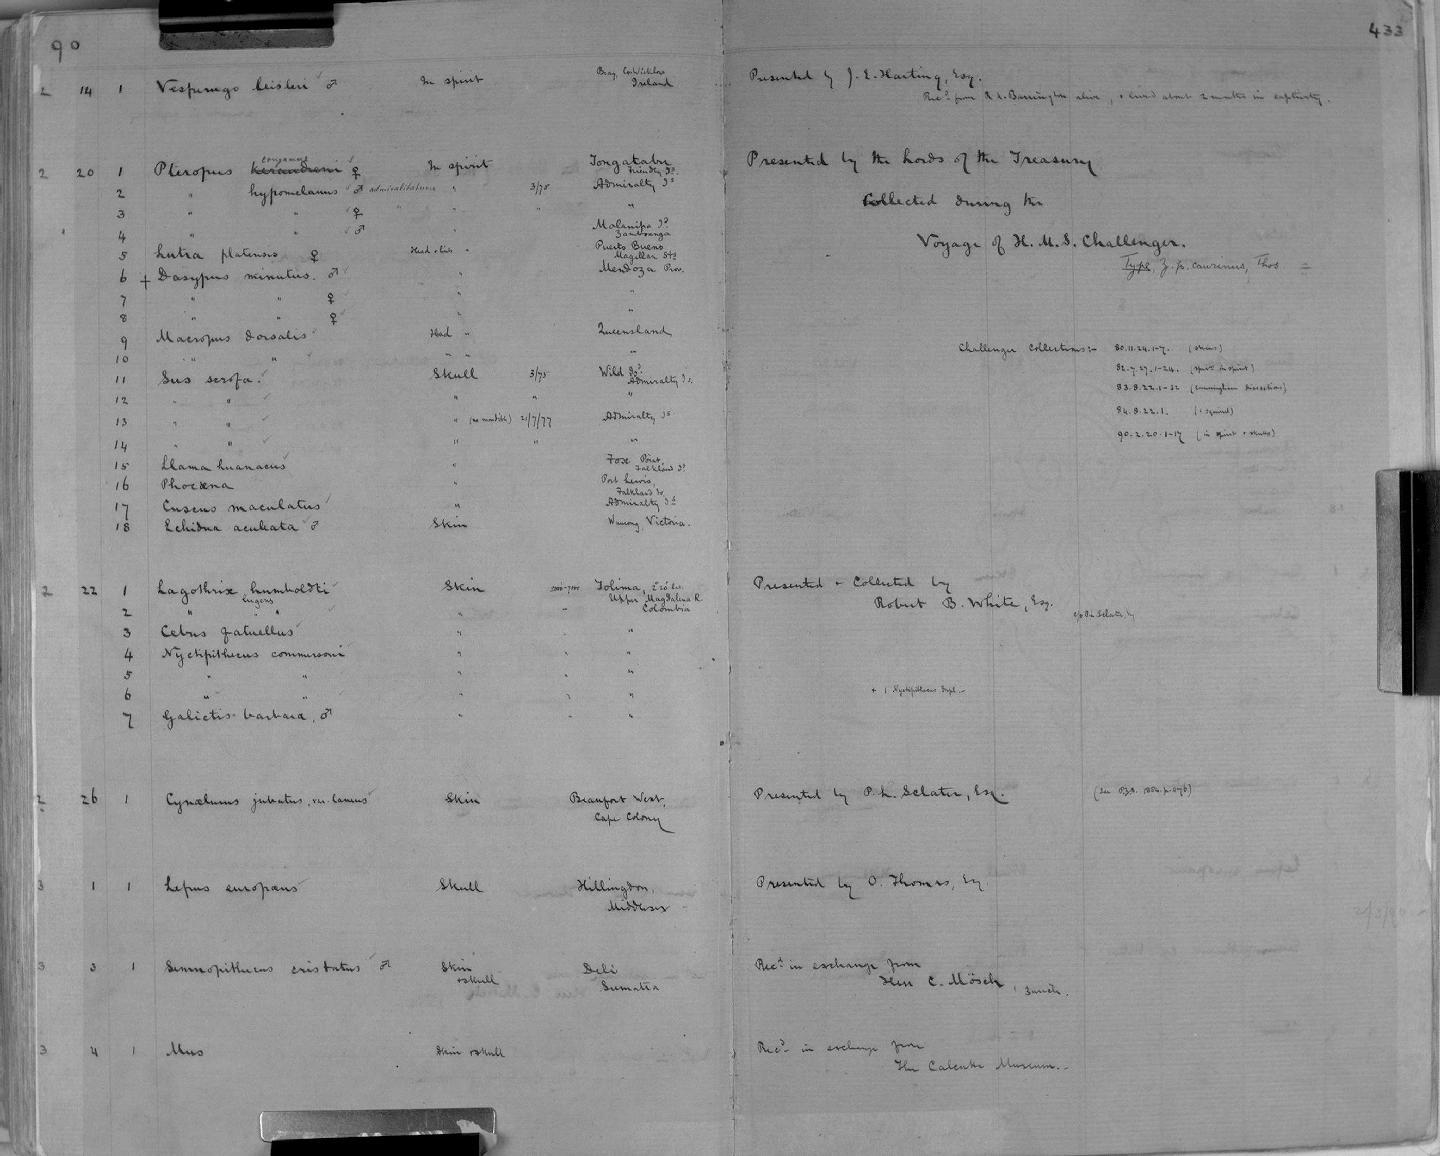 90
433
2 14 1 Vesperugo leisleri ♂ In spirit Bray, Co. Wicklow Ireland Presented by J. E. Harting, Esq.
Rec.d from R. M. Barrington alive, + lived about 2 months in captivity.
2 20 1 Pteropus keraudreni ♀ In spirit Tongatabu Friendly Is. Presented by the Lords of the Treasury
2 " hypomelanus ♂ admiralitatum " 3/75 Admiralty Is Collected during the
3 " " ♀ " " "
4 " " ♂ " Malanipa Is. Zamboanga Voyage of H.M.S. Challenger.
5 Lutra platensis ♀ Puerto Bueno Magellan Sts
6 + Dasypus minutus. ♂ " Mendoza Prov. Type, Z. p. caurinus, Thos =
7 " " ♀ " "
8 " " ♀ " "
9 Macropus dorsalis Head " Queensland
10 " " " " " Challenger Collections:- 80.11.24.1-7. (skins)
11 Sus scrofa. Skull 3/75 Wild Is. Admiralty Is. 82.7.27.1-24. (spec. in spirit)
12 " " " " " 83.8.22.1-32 (Cunningham dissections)
13 " " " (no mandible) 21/7/77 Admiralty Is 84.8.22.1.
14 " " " " " 90.2.20.1-17 (in spirit + skulls)
15 Llama huanacus " Fox Point, Falkland Is.
16 Phocaena " Port Lewis, Falkland Is.
17 Cuscus maculatus " Admiralty Is
18 Echidna aculeata ♂ Skin Victoria.
2 22 1 Lagothrix humboldti Skin Tolima, Upper Magdalena R Colombia Presented + Collected by
2 " lugens " " - Robert B. White, Esq.
3 Cebus fatuellus " - "
4 Nyctipithecus commersoni " - "
5 " " " - "
6 " " " - " + 1 Nyctipithecus dupl.-
7 Galictis barbara, ♂ " - "
2 26 1 Cynælurus jubatus, var. laneus Skin Beaufort West, Cape Colony Presented by P. L. Sclater, Esq. (See P.Z.S. 1884. p. 476)
3 1 1 Lepus europæus Skull Hillingdon, Middlesex Presented by O. Thomas, Esq
3 3 1 Semnopithecus cristatus ♂ Skin + skull Deli Sumatra Rec.d in exchange from
Herr C. Mösch, Zurich.
3 4 1 Mus Skin + skull Rec.d in exchange from
The Calcutta Museum.-